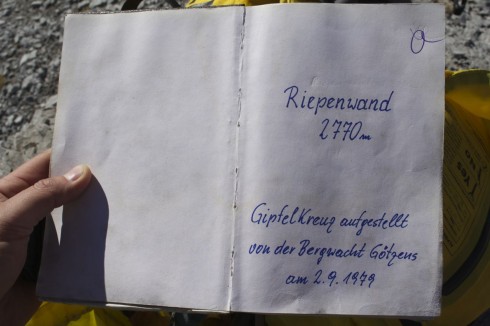 Riepenwand
2770m
Gipfelkreuz aufgestellt
von der Bergwacht Götzens
am 2.9.1979